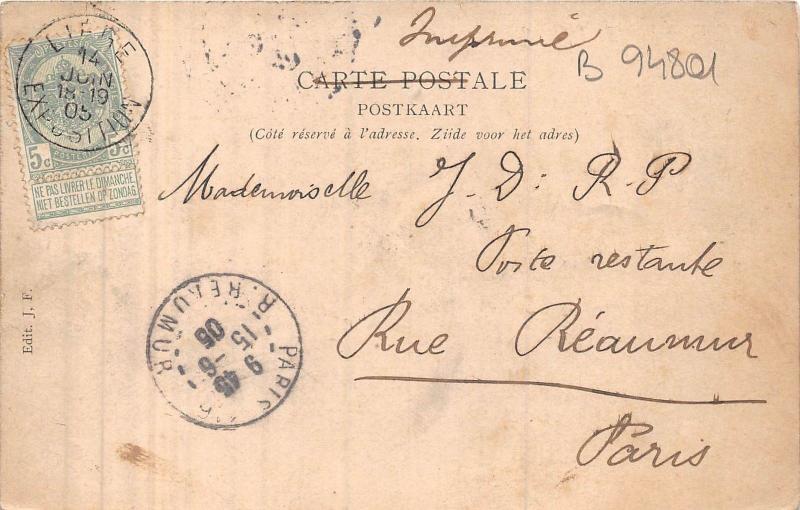 LIEGE
14
JUIN
18-19
05
EXPOSITION
5c 5c
NE PAS LIVRER LE DIMANCHE
NIET BESTELLEN OP ZONDAG
Imprimé
B 94801
CARTE POSTALE
POSTKAART
(Côté réservé à l'adresse. Zijde voor het adres)
Mademoiselle J. D: R. P
Poste restante
Rue Réaumur
Paris
PARIS
R. REAUMUR
9 45
15 -6
05
Edit. J. F.